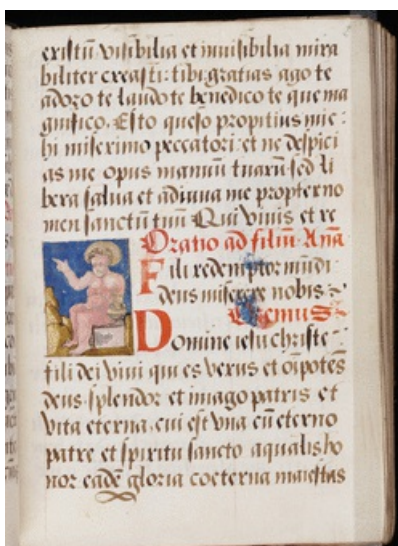 existũ visibilia et inuisibilia mira
biliter creasti: tibi gratias ago te
adoro te laudo te benedico te que ma
gnifico. Esto queso propitius mic-
hi misérimo peccatori: et ne despici
as me opus manuũ tuarũ sed li
bera salua et adiuua me propter no
men sanctũ tuũ Qui viuis et re
Oratio ad filiũ. Anã
Fili redemptor mũdi
deus miserere nobis
Oremus
Domine iesu christe
fili dei viui qui es verus et oĩpotẽs
deus splendor et imago patris et
vita eterna, cui est vna cũ eterno
patre et spiritu sancto aqualis ho
nor eadẽ gloria coeterna maiestas